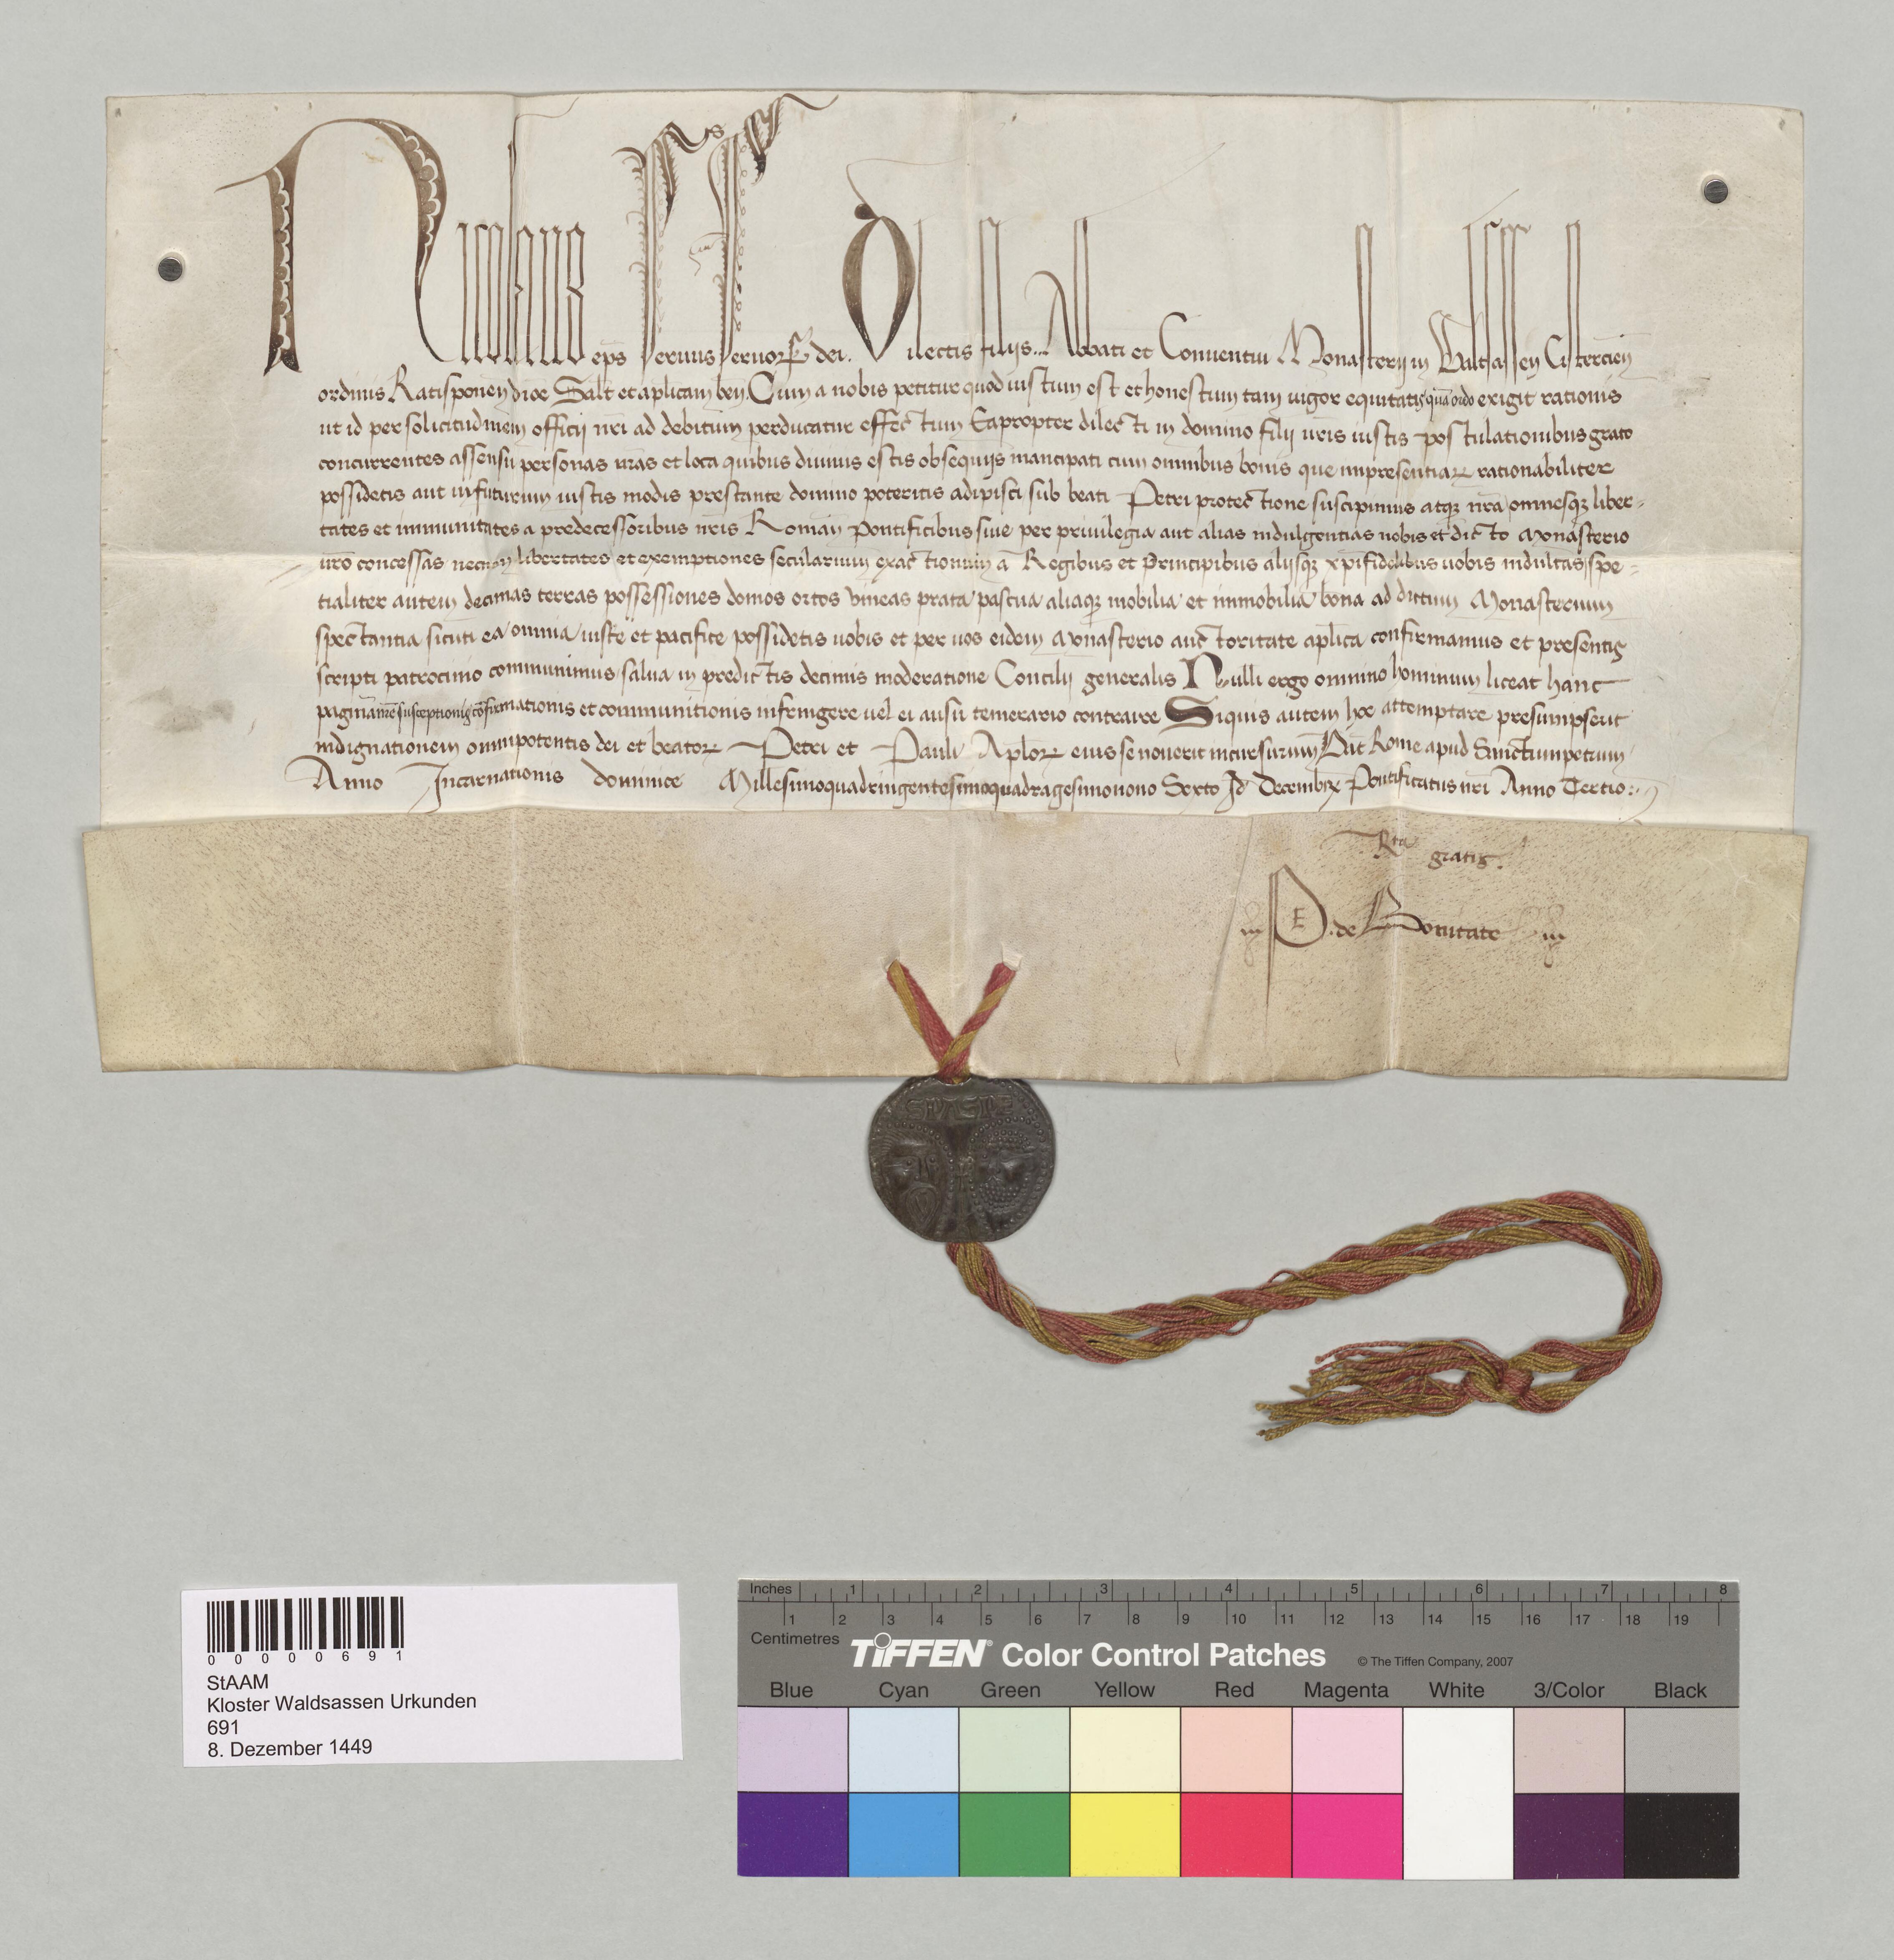 Nicolaus ep̄s Seruus Seruorꝝ dei. Dilectis filijs .. Abbati et Conuentui Monasterij in Waltsassen Cistercien̄
ordinis Ratisponen̄ dioc̄ Salt̄ et ap̄licam ben̄. Cum a nobis petitur quod iustum est et honestum tam uigor equitatis quā ordo exigit rationis
ut id per solicitudinem officij nr̄i ad debitum perducatur effectum Eapropter dilecti in domino filij ur̄is iustis postulationibus grato
concurrentes assensu personas ur̄as et loca quibus diuinis estis obsequijs mancipati cum omnibus bonis que impresentiaꝝ rationabiliter
possidetis aut infuturum iustis modis prestante domino poteritis adipisci sub beati Petri protectione suscipimus atqꝫ nr̄a omnesqꝫ liber-
tates et immunitates a predecessoribus nr̄is Roman̄ Pontificibus siue per priuilegia aut alias indulgentias uobis et dicto Monasterio
ur̄o concessas necnon libertates et exemptiones secularium exactionum a Regibus et Principibus alijsqꝫ xp̄ifidelibus uobis indultas spe-
tialiter autem decimas terras possessiones domos ortos vineas prata pascua aliaqꝫ mobilia et immobilia bona ad dictum Monasterium
spectantia sicuti ea omnia iuste et pacifice possidetis uobis et per uos eidem Monasterio auctoritate ap̄lica confirmamus et presentis
scripti patrocinio communimus salua in predictis decimis moderatione Concilij generalis Nulli ergo omnino hominum liceat hanc
paginam nr̄e susceptionis cōfirmationis et communitionis infringere uel ei ausu temerario contraire Siquis autem hoc attemptare presumpserit
indignationem omnipotentis dei et beatorꝝ Petri et Pauli Ap̄lorꝝ eius se nouerit incursurum Dat̄ Rome apud Sanctumpetrum
Anno Incarnationis dominice Millesimoquadringentesimoquadragesimonono Sexto Id̄ Decembrꝭ Pontificatus nr̄i Anno Tertio
Rta gratis.
de Bonitate
SPASPE
00000691
StAAM
Kloster Waldsassen Urkunden
691
8. Dezember 1449
Inches 1 2 3 4 5 6 7 8
1 2 3 4 5 6 7 8 9 10 11 12 13 14 15 16 17 18 19
Centimetres
TIFFEN® Color Control Patches © The Tiffen Company, 2007
Blue Cyan Green Yellow Red Magenta White 3/Color Black